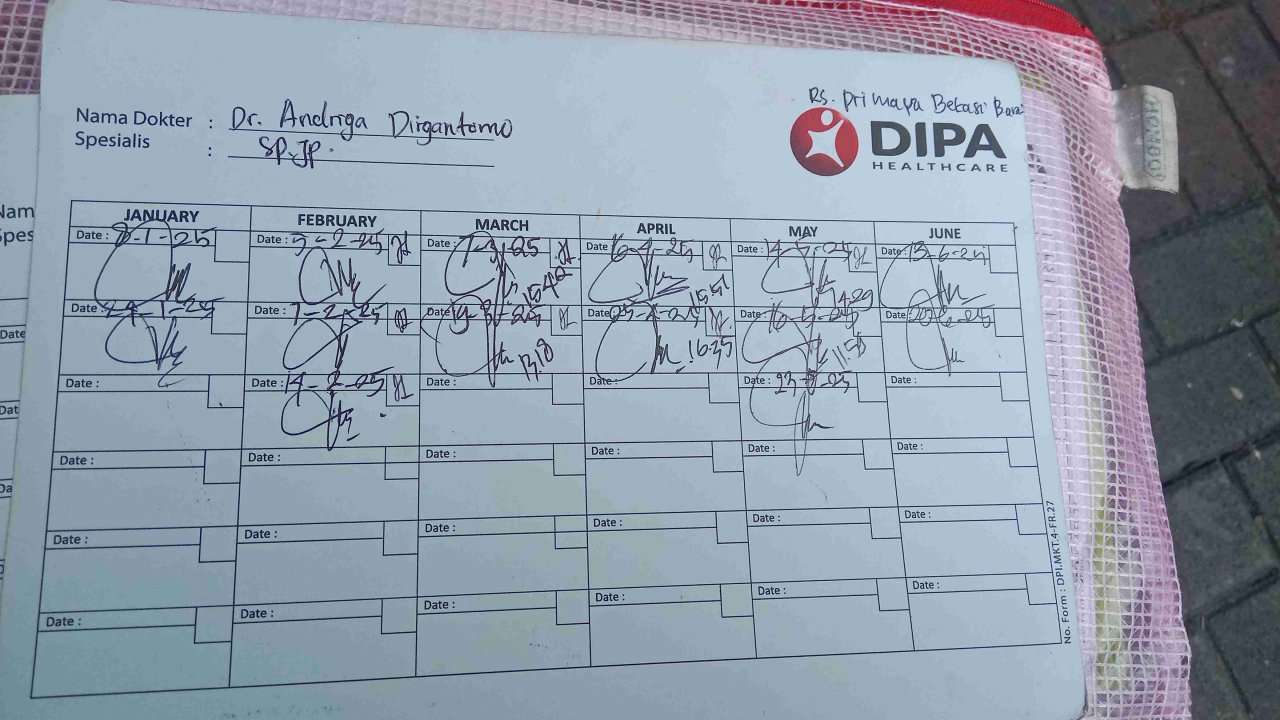 Rs. Primaya Bekasi Barat
Nama Dokter : Dr. Andriga Dirgantomo
Spesialis : SP.JP.
DIPA
HEALTHCARE
JANUARY FEBRUARY MARCH APRIL MAY JUNE
Date : 8-1-25 Date : 3-2-25 Date : 7-3-25 Date : 16-4-25 Date : 14-5-25 Date : 13-6-25
15.42 15.51 14.29
Date : 24-1-25 Date : 7-2-25 Date : 19-3-25 Date : 23-4-25 16-5-25 Date : 20-6-25
13.18 16.35 11.53
Date : Date : 14-2-25 Date : Date : Date : 23-5-25 Date :
Date : Date : Date : Date : Date : Date :
Date : Date : Date : Date : Date : Date :
Date : Date : Date : Date : Date : Date :
No. Form : DPI.MKT.4-FR.27
Nam
Spes
Date
Dat
Da